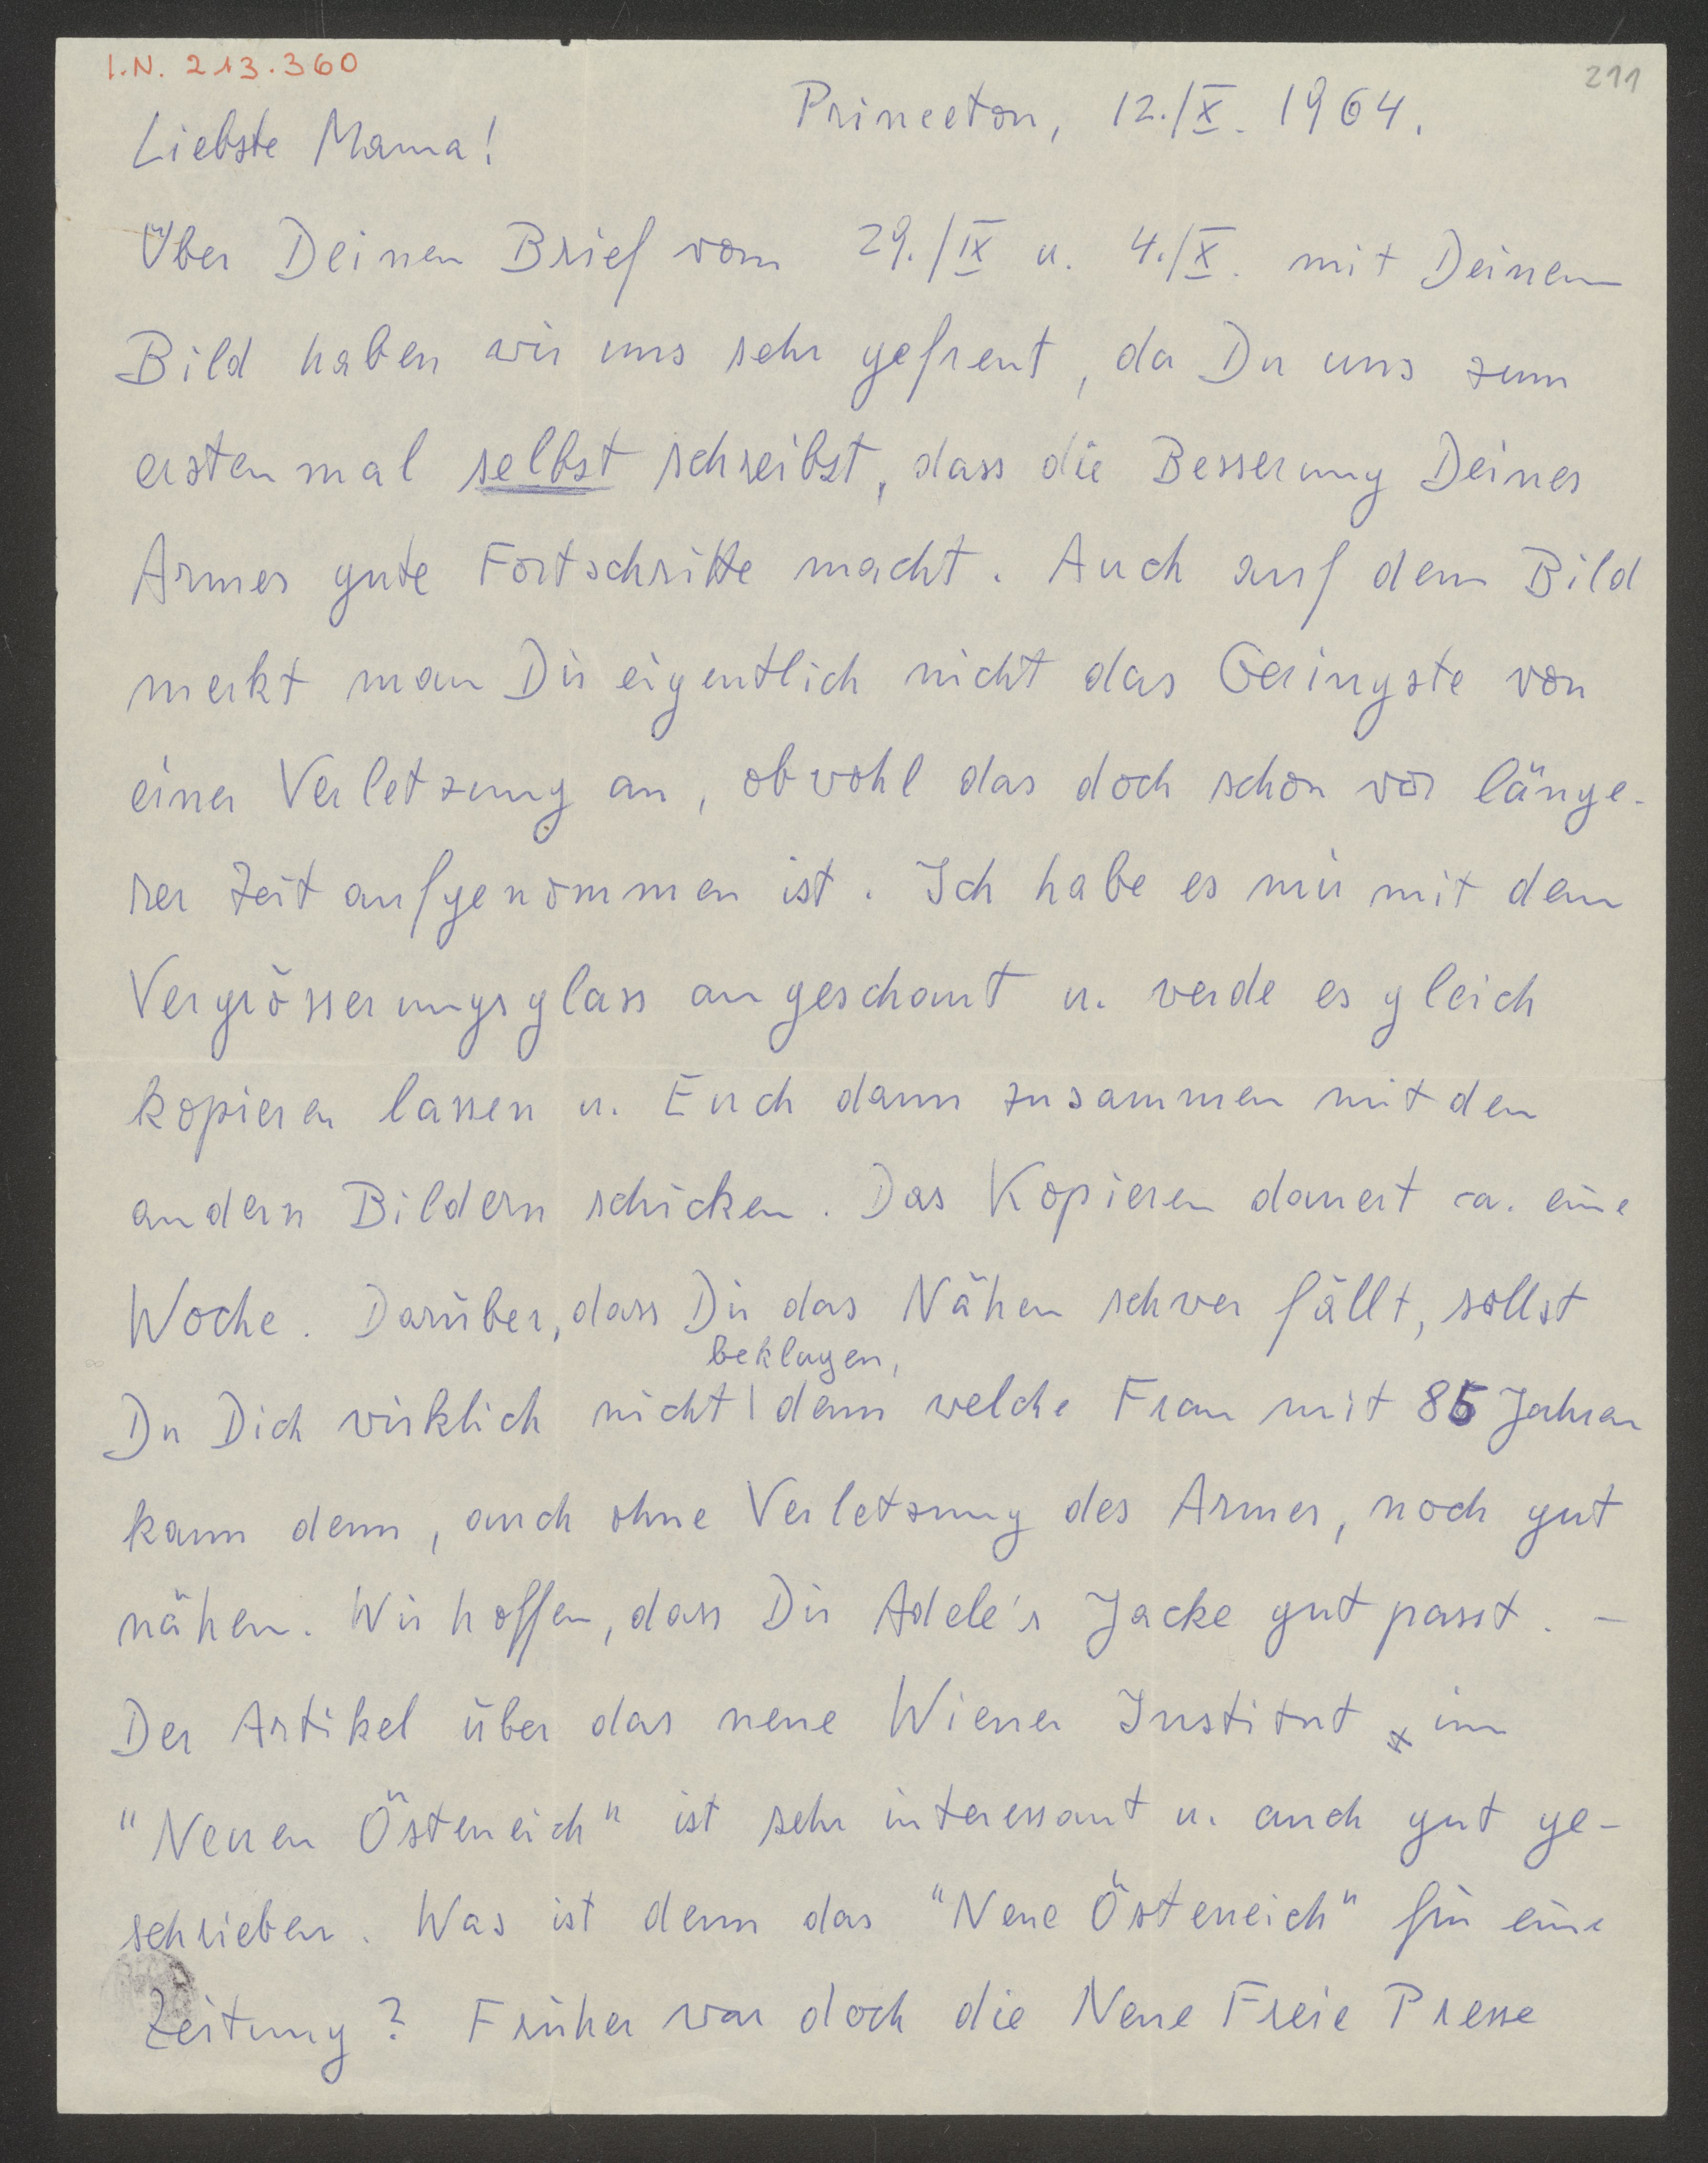 I.N. 213.360
211
Princeton, 12./X. 1964.
Liebste Mama!
Über Deinen Brief vom 29./IX u. 4./X. mit Deinem
Bild haben wir uns sehr gefreut, da Du uns zum
erstenmal selbst schreibst, dass die Besserung Deines
Armes gute Fortschritte macht. Auch auf dem Bild
merkt man Dir eigentlich nicht das Geringste von
einer Verletzung an, obwohl das doch schon vor länge-
rer Zeit aufgenommen ist. Ich habe es mir mit dem
Vergrösserungsglass angeschaut u. werde es gleich
kopieren lassen u. Euch dann zusammen mit den
andern Bildern schicken. Das Kopieren dauert ca. eine
Woche. Darüber, dass Dir das Nähen schwer fällt, sollst
beklagen,
Du Dich wirklich nicht | denn welche Frau mit 85 Jahren
kann denn, auch ohne Verletzung des Armes, noch gut
nähen. Wir hoffen, dass Dir Adele's Jacke gut passt. –
Der Artikel über das neue Wiener Institut im
"Neuen Österreich" ist sehr interessant u. auch gut ge-
schrieben. Was ist denn das "Neue Österreich" für eine
Zeitung? Früher war doch die Neue Freie Presse